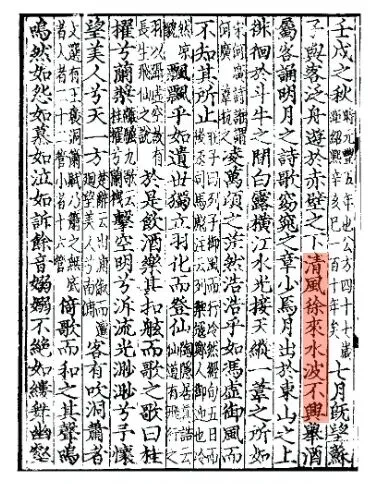 壬戌之秋時元豐五年也公方四十七歲距紹熙辛亥已一百十年矣七月既望蘇
子與客泛舟遊於赤壁之下清風徐來水波不興舉酒
屬客誦明月之詩歌窈窕之章少焉月出於東山之上
徘徊於斗牛之間白露橫江水光接天縱一葦之所如
凌萬頃之茫然浩浩乎如馮虛御風而
不知其所止
飄飄乎如遺世獨立羽化而登仙
長生飛仙之說於是飲酒樂其扣舷而歌之歌曰桂
櫂兮蘭槳擊空明兮泝流光渺渺兮予懷
望美人兮天一方客有吹洞簫者
倚歌而和之其聲嗚
嗚然如怨如慕如泣如訴餘音嫋嫋不絕如縷舞幽壑